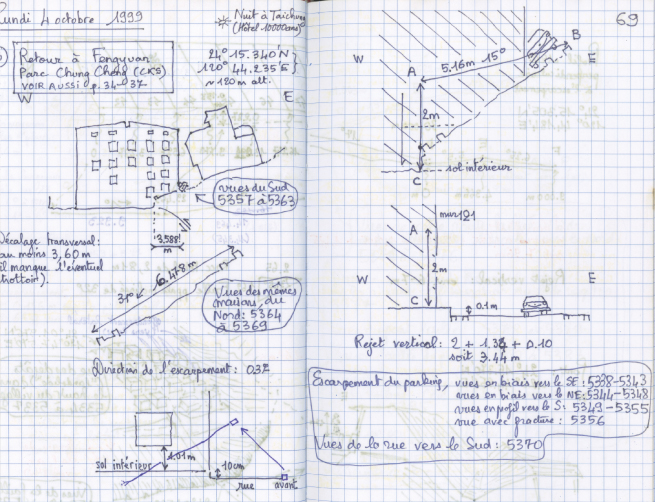 Lundi 4 octobre 1999
Nuit à Taichung
(Hôtel 10000 ans)
Retour à Fengyuan
Parc Chung Cheng (CKS)
VOIR AUSSI p. 34-37
24° 15.340'N
120° 44.235'E
~ 120m alt.
W
E
vues du Sud
5357 à 5363
3.588
m
Décalage transversal:
au moins 3,60 m
(il manque l'éventuel
trottoir).
31°
6.478m
Vues des mêmes
maisons, du
Nord: 5364
à 5369
Direction de l'escarpement: 037
sol intérieur
1.01m
10cm
rue
avant
69
W
A
5.16m 15°
B
E
2m
sol intérieur
C
mur 121
A
W
2m
E
C
0.1m
Rejet vertical: 2 + 1.34 + 0.10
soit 3.44 m
Escarpement du parking, vues en biais vers le SE: 5338-5343
vues en biais vers le NE: 5344-5348
vues en profil vers le S: 5349-5355
vue avec fracture: 5356
Vues de la rue vers le Sud: 5370